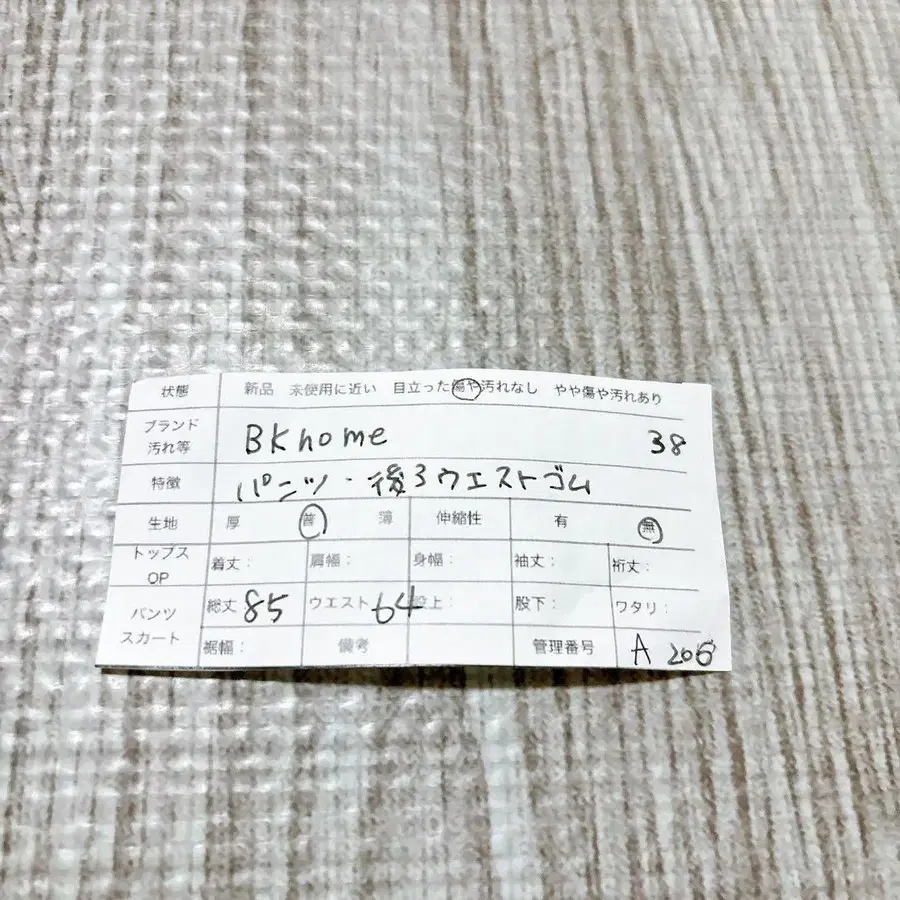 状態 新品 未使用に近い 目立った傷や汚れなし やや傷や汚れあり
ブランド 汚れ等 BKhome 38
特徴 パンツ・後ろウエストゴム
生地 厚 普 薄 伸縮性 有 無
トップス OP 着丈: 肩幅: 身幅: 袖丈: 裄丈:
パンツ スカート 総丈 85 ウエスト 64 股上: 股下: ワタリ:
裾幅: 備考 管理番号 A 206